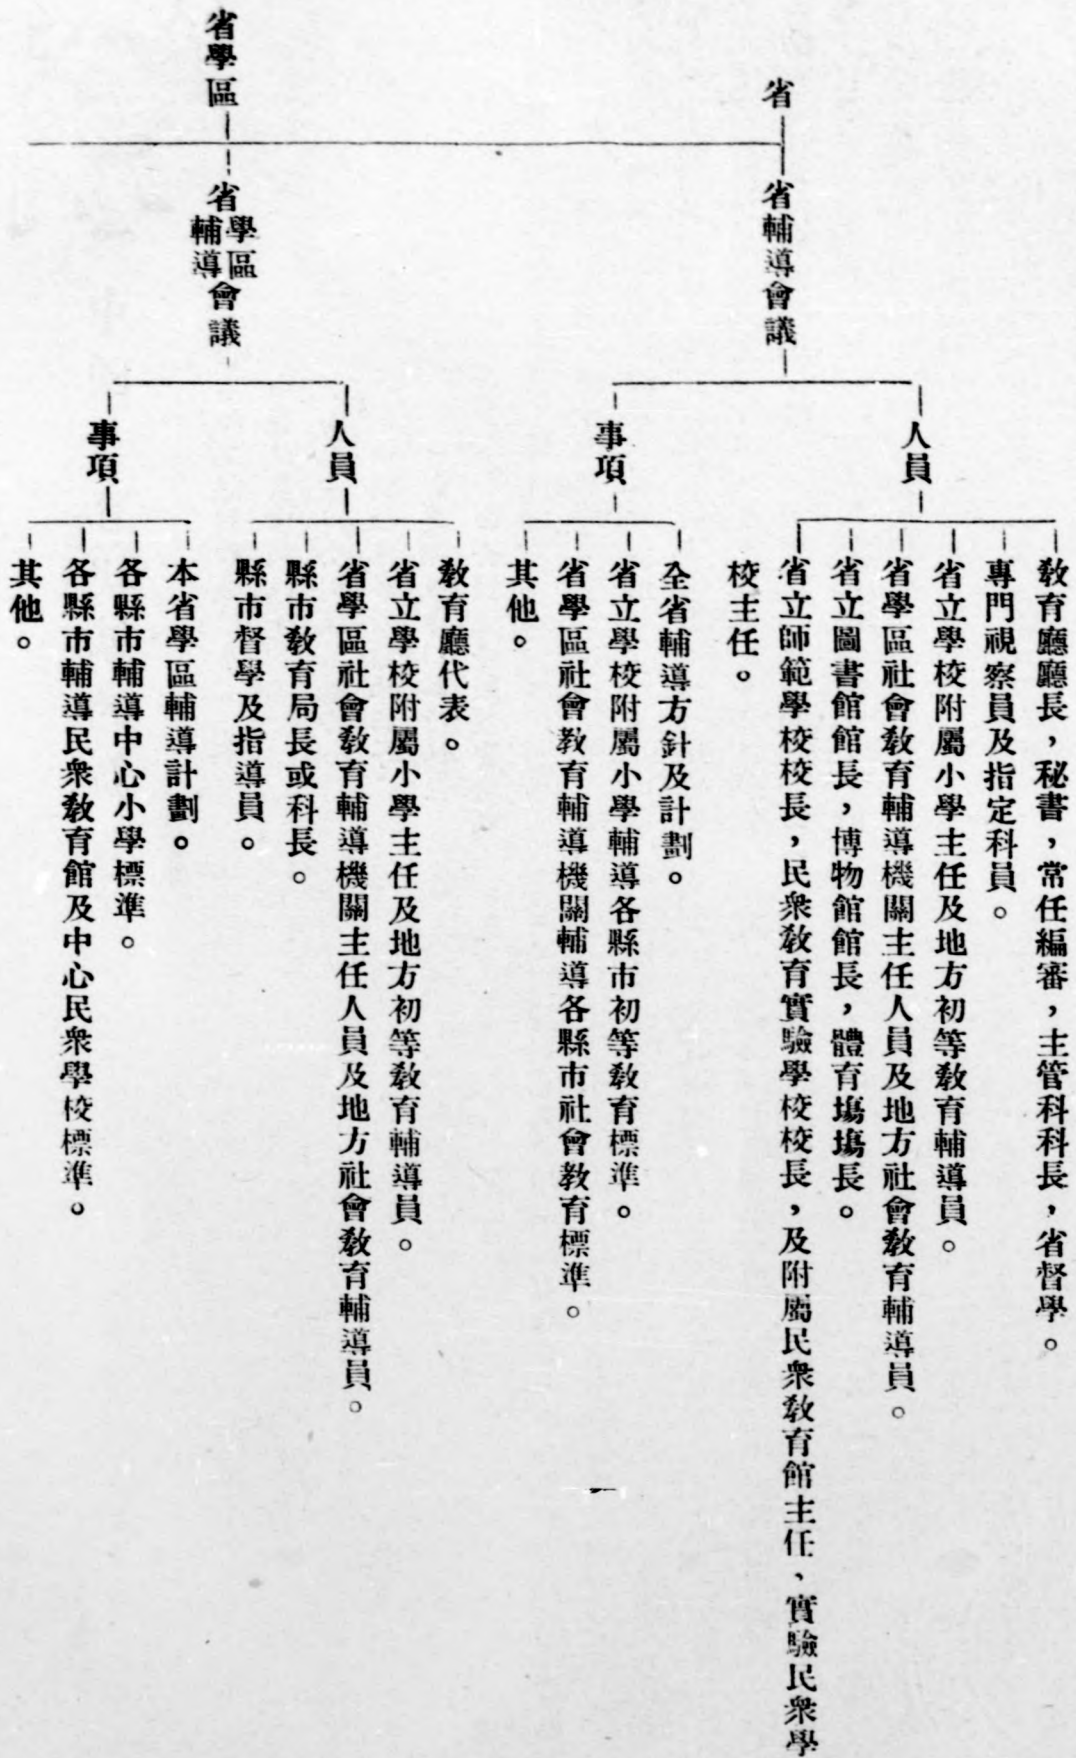 省
省輔導會議
人員
教育廳廳長，秘書，常任編審，主管科科長，省督學。
專門視察員及指定科員。
省立學校附屬小學主任及地方初等教育輔導員。
省學區社會教育輔導機關主任人員及地方社會教育輔導員。
省立圖書館館長，博物館館長，體育塲塲長。
省立師範學校校長，民衆教育實驗學校校長，及附屬民衆教育館主任、實驗民衆學
校主任。
事項
全省輔導方針及計劃。
省立學校附屬小學輔導各縣市初等教育標準。
省學區社會教育輔導機關輔導各縣市社會教育標準。
其他。
省學區
省學區輔導會議
人員
教育廳代表。
省立學校附屬小學主任及地方初等教育輔導員。
省學區社會教育輔導機關主任人員及地方社會教育輔導員。
縣市教育局長或科長。
縣市督學及指導員。
事項
本省學區輔導計劃。
各縣市輔導中心小學標準。
各縣市輔導民衆教育館及中心民衆學校標準。
其他。